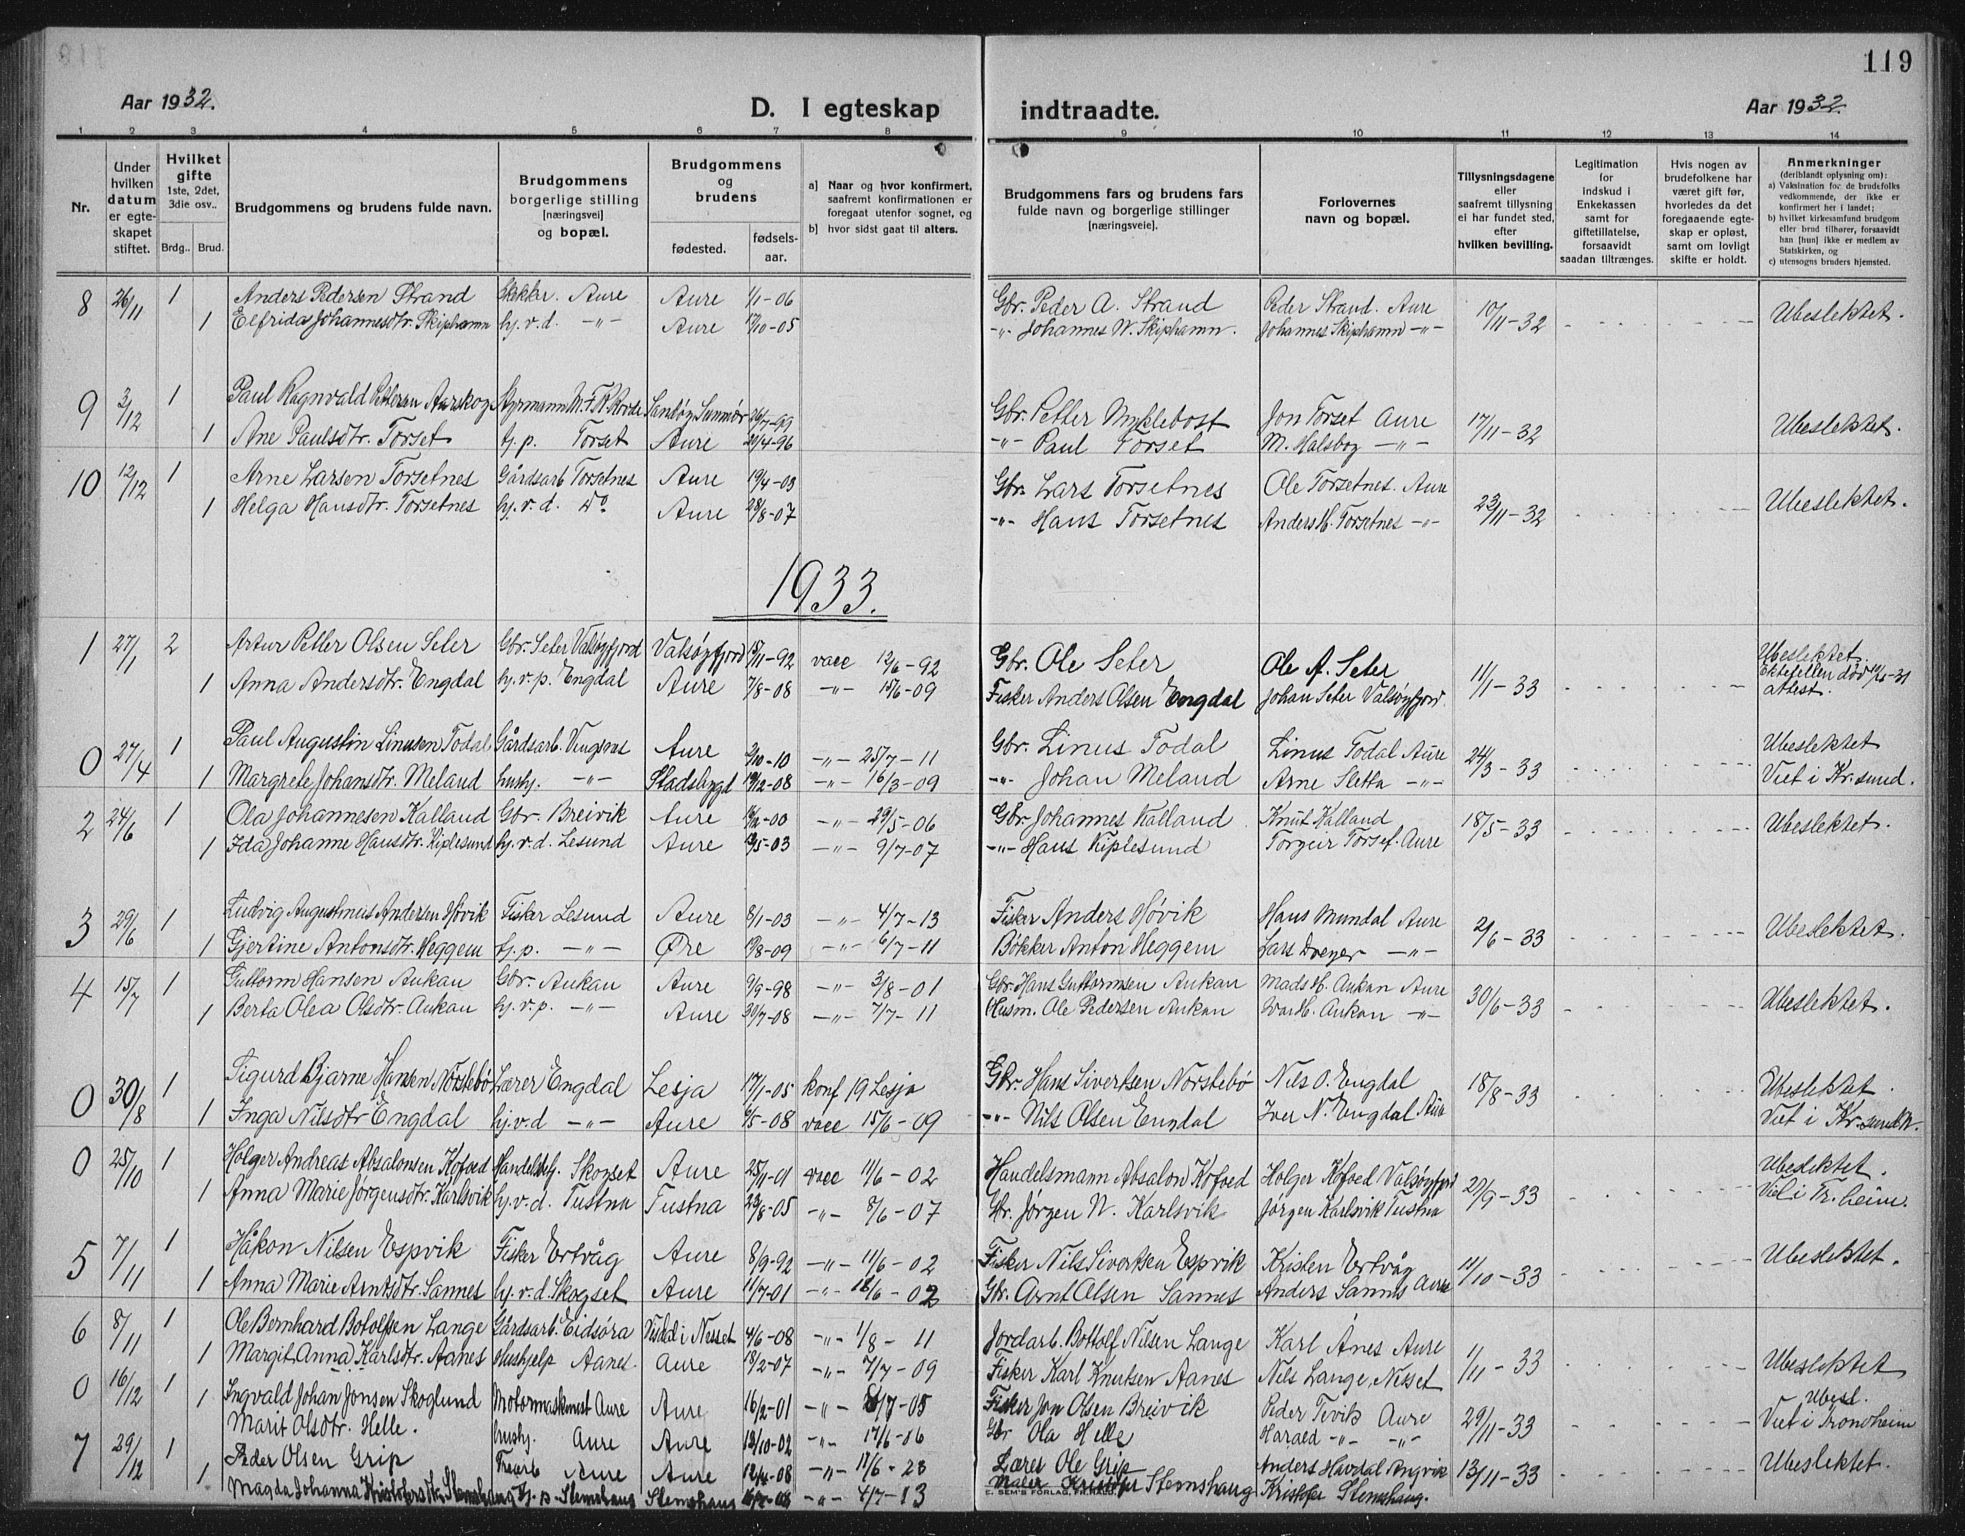 119
Aar 1932.
D. I egteskap indtraadte.
Aar 1932
1 2 3 4 5 6 7 8 9 10 11 12 13 14
Nr.
Under hvilken datum er egteskapet stiftet.
Hvilket gifte 1ste, 2det, 3die osv..
Brdg.. Brud.
Brudgommens og brudens fulde navn.
Brudgommens borgerlige stilling [næringsvei] og bopæl.
Brudgommens og brudens
fødested. fødsels-aar.
a) Naar og hvor konfirmert, saafremt konfirmationen er foregaat utenfor sognet, og
b) hvor sidst gaat til alters.
Brudgommens fars og brudens fars fulde navn og borgerlige stillinger [næringsveie].
Forlovernes navn og bopæl.
Tillysningsdagene eller saafremt tillysning ei har fundet sted, efter hvilken bevilling.
Legitimation for indskud i Enkekassen samt for giftetillatelse, forsaavidt saadan tiltrænges.
Hvis nogen av brudefolkene har været gift før, hvorledes da det foregaaende egteskap er opløst, samt om lovligt skifte er holdt.
Anmerkninger (deriblandt oplysning om):
a) Vaksination for de brudefolks vedkommende, der ikke er konfirmert her i landet;
b) hvilket kirkesamfund brudgom eller brud tilhører, forsaavidt han [hun] ikke er medlem av Statskirken, og
c) utensogns bruders hjemsted.
8 26/11 1 Anders Pedersen Strand Aure Aure 1/1-06 Gbr. Peder A. Strand Peder Strand. Aure 10/11-32 Ubeslektet.
1 Elfrida Johannesdtr. Skiphamn hj.v.d. -"- Aure 17/10-05 -"- Johannes W. Skiphamn. Johannes Skiphamn -"-
9 3/12 1 Paul Ragnvald Petleren Aarskog Styrmann Sandøy Sunmør 26/7-99 Gbr. Petler Myklebost Jon Torset Aure 17/11-32 Ubeslektet.
1 Ane Paulsdtr. Torset hj.p. Torset Aure 21/4-96 -"- Paul Torset M. Halsbog -"-
10 12/12 1 Arne Larsen Torsetnes Gårdsarb Torsetnes Aure 19/4-03 Gbr. Lars Torsetnes Ole Torsetnes. Aure 23/11-32 Ubeslektet.
1 Helga Hansdtr. Torsetnes hj.v.d. Do Aure 28/8-07 -"- Hans Torsetnes Anders H. Torsetnes -"-
1933.
1 27/1 2 Artur Petler Olsen Seter Gbr. Seter Valsøyfjord Valsøyfjord 15/11-92 vacc 12/6-92 Gbr. Ole Seter Ole A. Seter 11/1-33 Ubeslektet.
1 Anna Andersdtr. Engdal hj.v.p. Engdal Aure 7/8-08 -"- 15/6-09 Fisker Anders Olsen Engdal Johan Seter Valsøyfjord Ektefellen død attest.
0 27/4 1 Paul Augustin Linusen Todal Gårdsarb. Vingsnes Aure 2/10-10 -"- 25/7-11 Gbr. Linus Todal Linus Todal Aure 24/3-33 Ubeslektet
1 Margrete Johansdtr. Meland hushj. -"- Stadsbygd 19/12-08 -"- 16/3-09 -"- Johan Meland Arne Sletta -"- Viet i Kr.sund.
2 24/6 1 Ola Johannesen Kalland Gbr. Breivik Aure -00 -"- 29/5-06 Gbr. Johannes Kalland Knut Kalland 18/5-33 Ubeslektet.
1 Ida Johanne Hansdtr. Kiplesund hj.v.d. Lesund Aure 19/5-03 -"- 9/7-07 -"- Hans Kiplesund Torgeir Torset. Aure
3 29/6 1 Ludvig Augustinus Andersen Høvik Fisker Lesund Aure 8/1-03 -"- 4/7-13 Fisker Anders Høvik Hans Mundal Aure 2/6-33 Ubeslektet.
1 Gjertine Antonsdtr. Heggem hj.p. -"- Øre 19/8-09 -"- 6/7-11 Bøkker Anton Heggem Lars Dreyer -"-
4 15/7 1 Guttorm Hansen Aukan Gbr. Aukan Aure 9/9-98 -"- 3/8-01 Gbr. Hans Guttormsen Aukan Mads H. Aukan Aure 30/6-33 Ubeslektet.
1 Berta Olea Olsdtr. Aukan hj.v.p. -"- Aure 30/7-08 -"- 7/7-11 Husm. Ole Pedersen Aukan Ivar H. Aukan -"-
0 30/8 1 Sigurd Bjarne Hansen Norstebø Lærer Engdal Lesja 17/1-05 konf 19 Lesja Gbr. Hans Sivertsen Norstebø Nils O. Engdal 18/8-33 Ubeslektet.
1 Inga Nilsdtr Engdal hj.v.d -"- Aure 6/5-08 vacc 15/6-09 -"- Nils Olsen Engdal Iver N. Engdal Aure Viet i Kr.sund N.
0 25/10 1 Holger Andreas Absalonsen Kofoed Handelsbetj. Skogset Aure 25/11-01 vacc 11/6-02 Handelsmann Absalon Kofoed Holger Kofoed Valsøyfjord 21/9-33 Ubeslektet.
1 Anna Marie Jørgensdtr. Karlsvik hj.v.d. Tustna Tustna 23/8-05 -"- 8/6-07 Gbr. Jørgen N. Karlsvik Jørgen Karlsvik Tustna Viet i Tr.heim.
5 7/11 1 Håkon Nilsen Espvik Fisker Ertvåg Aure 8/9-92 -"- 11/6-02 Fisker Nils Sivertsen Espvik Kristen Ertvåg 11/10-33 Ubeslektet.
1 Anna Marie Arntsdtr. Sannes hj.v.d. Skogset Aure 11/7-01 -"- 18/6-02 Gbr. Arnt Olsen Sannes Anders Sannes Aure
6 8/11 1 Ole Bernhard Botolfsen Lange Gårdsarb. Eidsøra Visdal i Nesset 4/6-08 -"- 1/8-11 Jordarb. Bottolf Nilsen Lange Karl Ånes Aure 1/11-33 Ubeslektet
1 Margit Anna Karlsdtr. Aanes Hushjelp Aanes. Aure 18/2-07 -"- 7/7-09 Fisker Karl Knutsen Aanes Nils Lange, Nesset
0 16/12 1 1 Ingvald Johan Jonsen Skoglund Motormaskinist Aure Aure 16/2-01 -"- 8/7-05 Fisker Jon Olsen Breivik Peder Tevik Aure 29/11-33 Ubesl.
Marit Olsdtr. Helle. hushj. Aure Aure 13/10-02 -"- 17/6-06 Gbr Ola Helle Harald -"- -"- Viet i Trondheim
7 29/12 1 Peder Olsen Grip Aure Aure -08 -"- 11/6-23 Lærer Ole Grip Anders Havdal Angvik 13/11-33 Ubeslektet.
1 Magda Johanna Kristofersdtr. Stemshaug hj.p. Stemshaug Stemshaug -"- 4/7-13 Maler Kristofer Stemshaug Kristofer Stemshaug.
E. SEM'S FORLAG, FR.HALD.